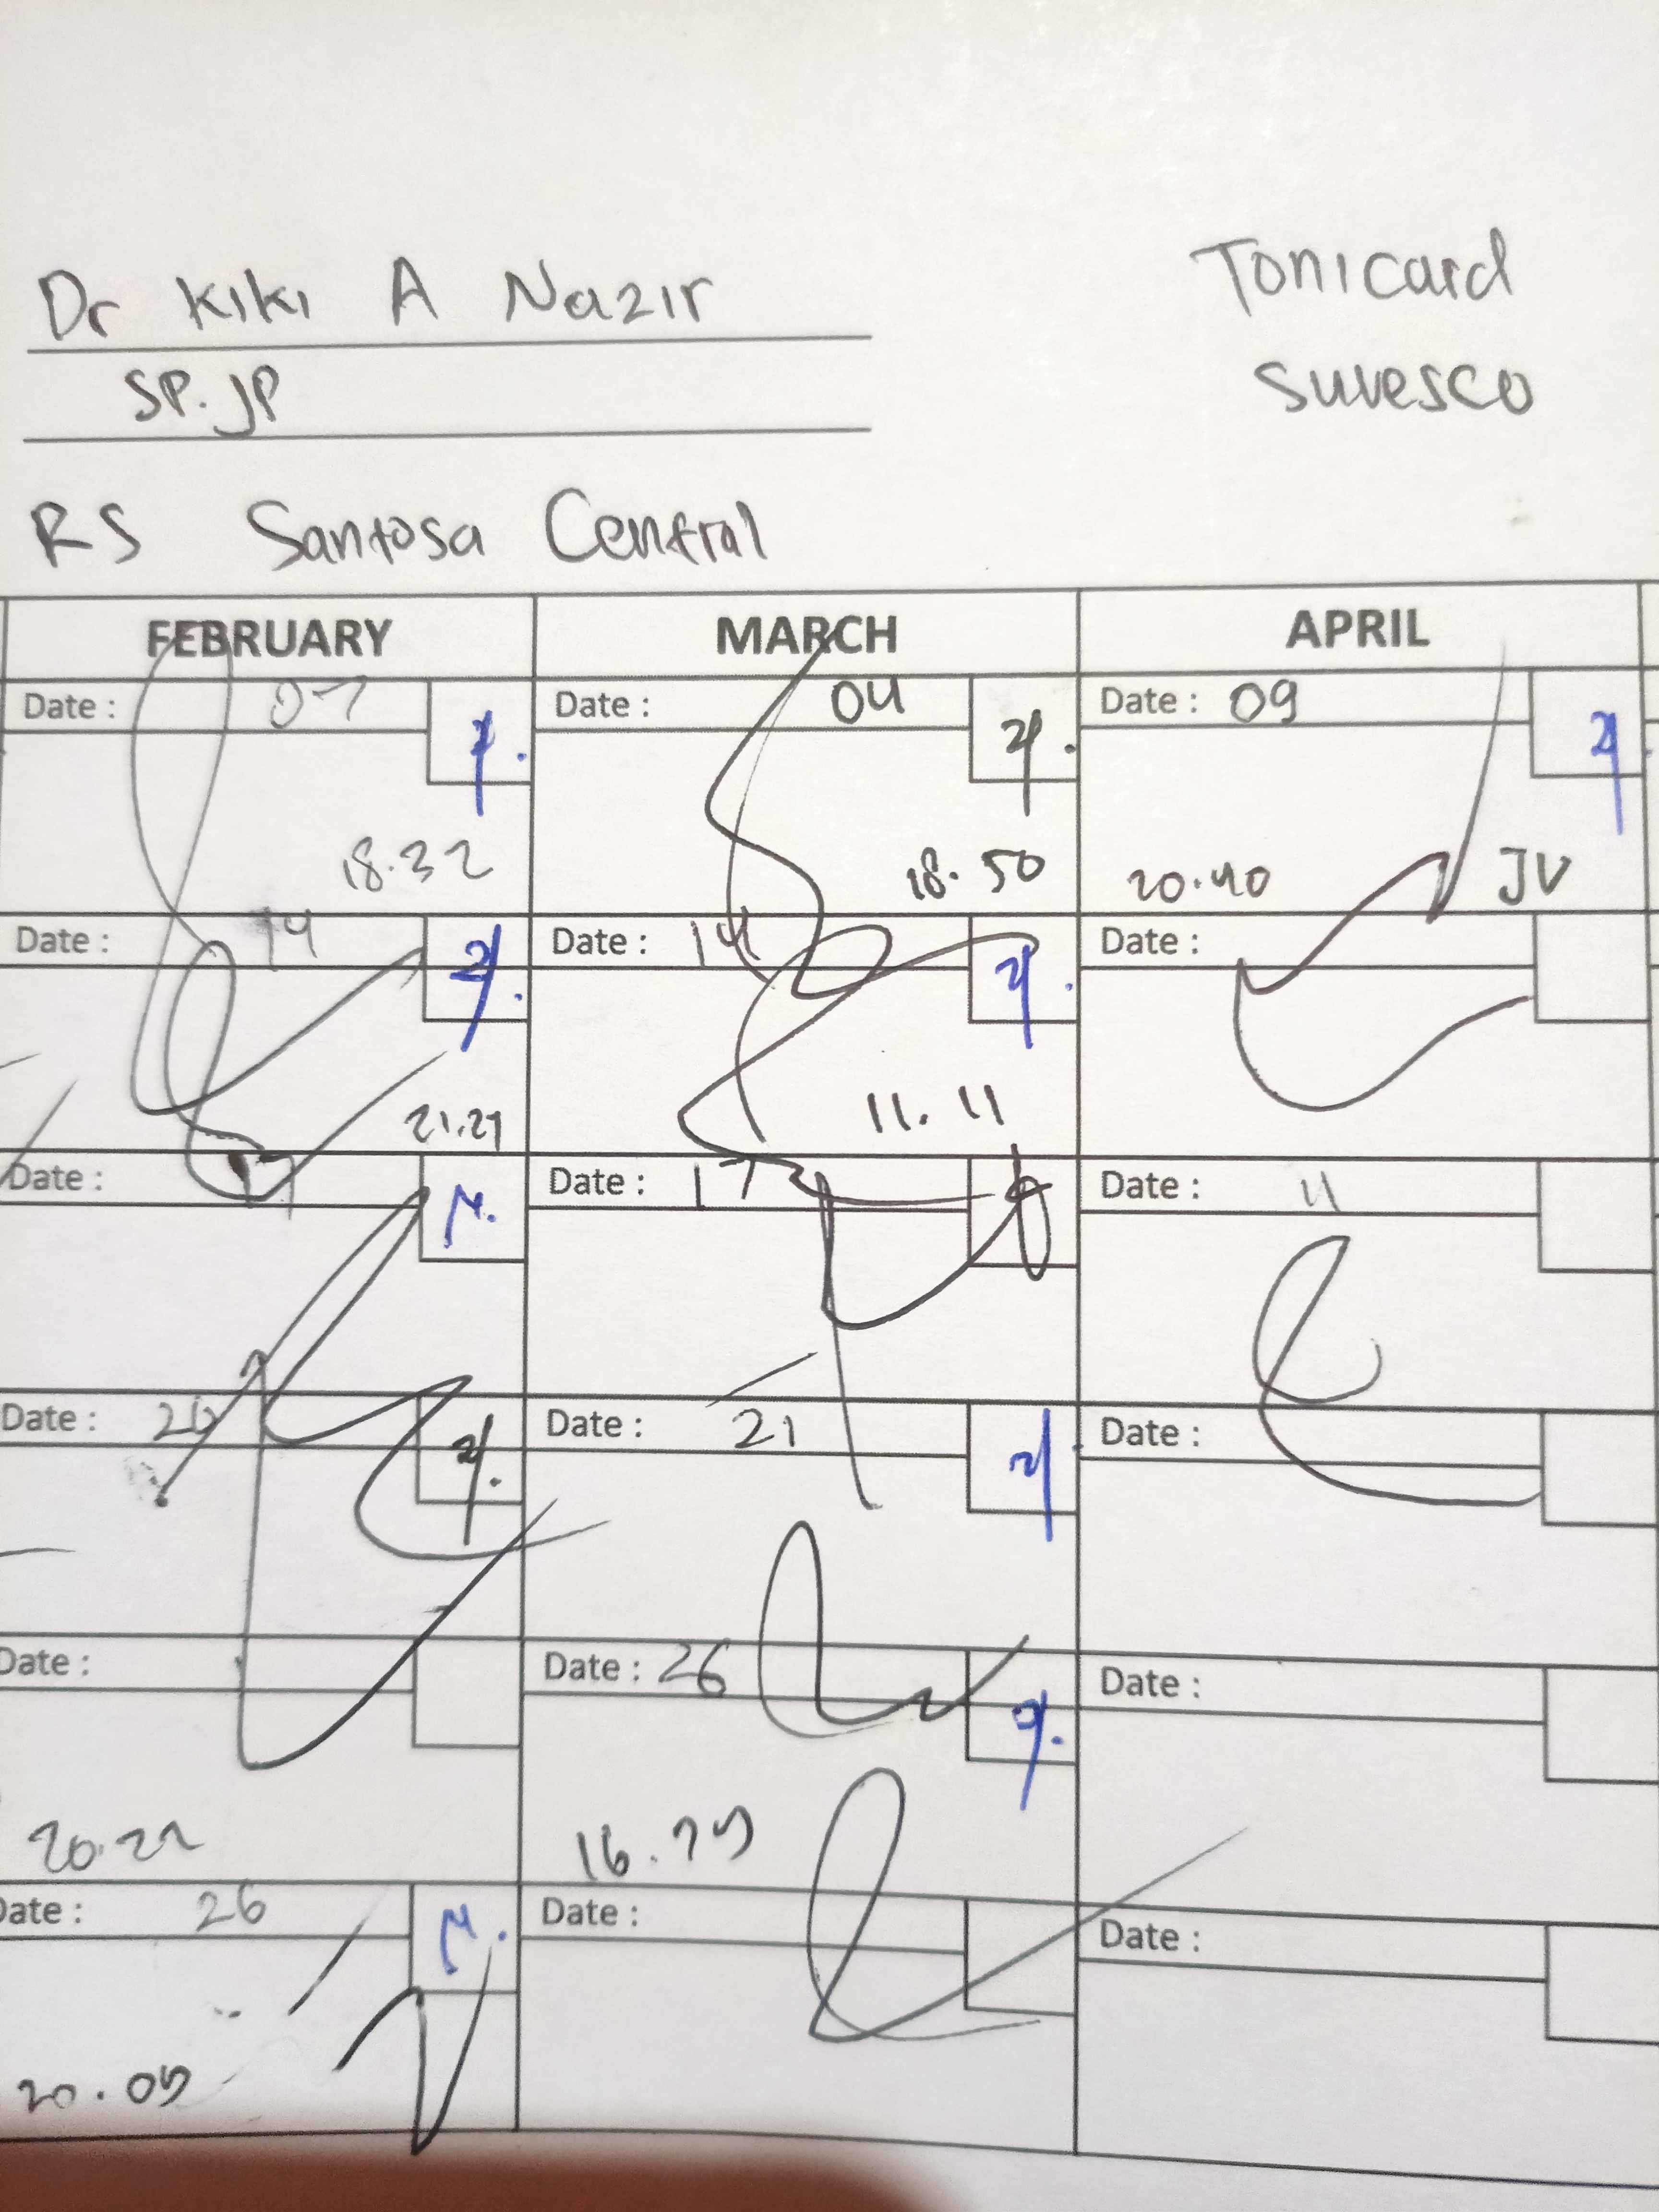 Dr Kiki A Nazir
Tonicard
SP.JP
Suvesco
RS Santosa Central
FEBRUARY MARCH APRIL
Date : 07 Date : 04 Date : 09
18.32 18.50 20.40 JV
Date : 14 Date : 14 Date :
21.21 11.11
Date : 17 Date : 17 Date : 11
Date : 20 Date : 21 Date :
Date : Date : 26 Date :
20.22
Date : 26 Date : Date :
20.05